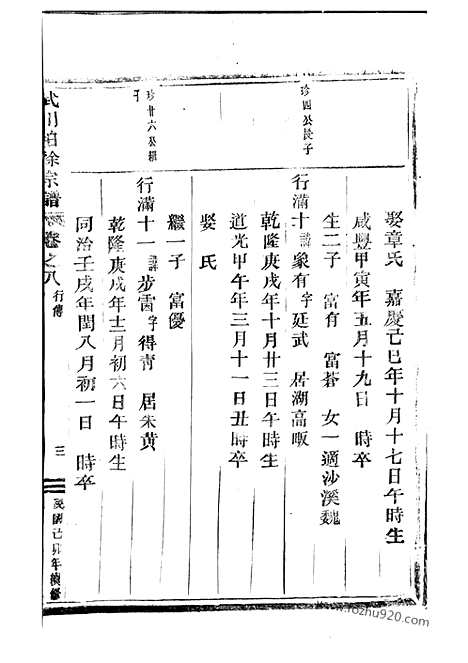 娶章氏　嘉慶己巳年十月十七日午時生
咸豐甲寅年五月十九日　時卒
生二子　富有　富蒼　女一適沙溪魏
珍四公長子
行滿十諱象有字廷武　居湖高畈
乾隆庚戌年十月廿三日午時生
道光甲午年三月十一日丑時卒
娶　氏
繼一子　富優
珍廿六公繼子
行滿十一諱步雲字得青　居朱黄
乾隆庚戌年十二月初六日午時生
同治壬戌年閏八月初一日　時卒
徐宗譜　卷之八　行傳
三
民國己卯年續修
www.rozhu920.com